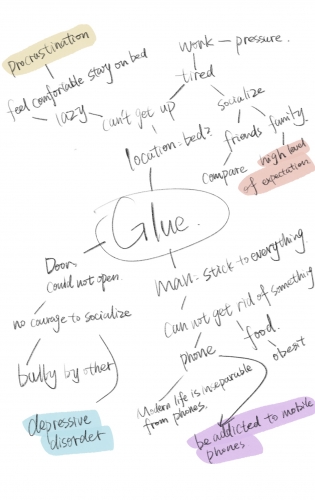 procrastination
work — pressure.
feel comfortable stay on bed
tired
lazy
can't get up
socialize
location = bed?
friends
family.
compare
high level
of expectation
Glue.
Door
could not open.
man - stick to everything.
no courage to socialize
can not get rid of something
bully by other
phone
food.
obesit
Modern life is inseparable
from phones.
depressive
disorder
be addicted to mobile
phones